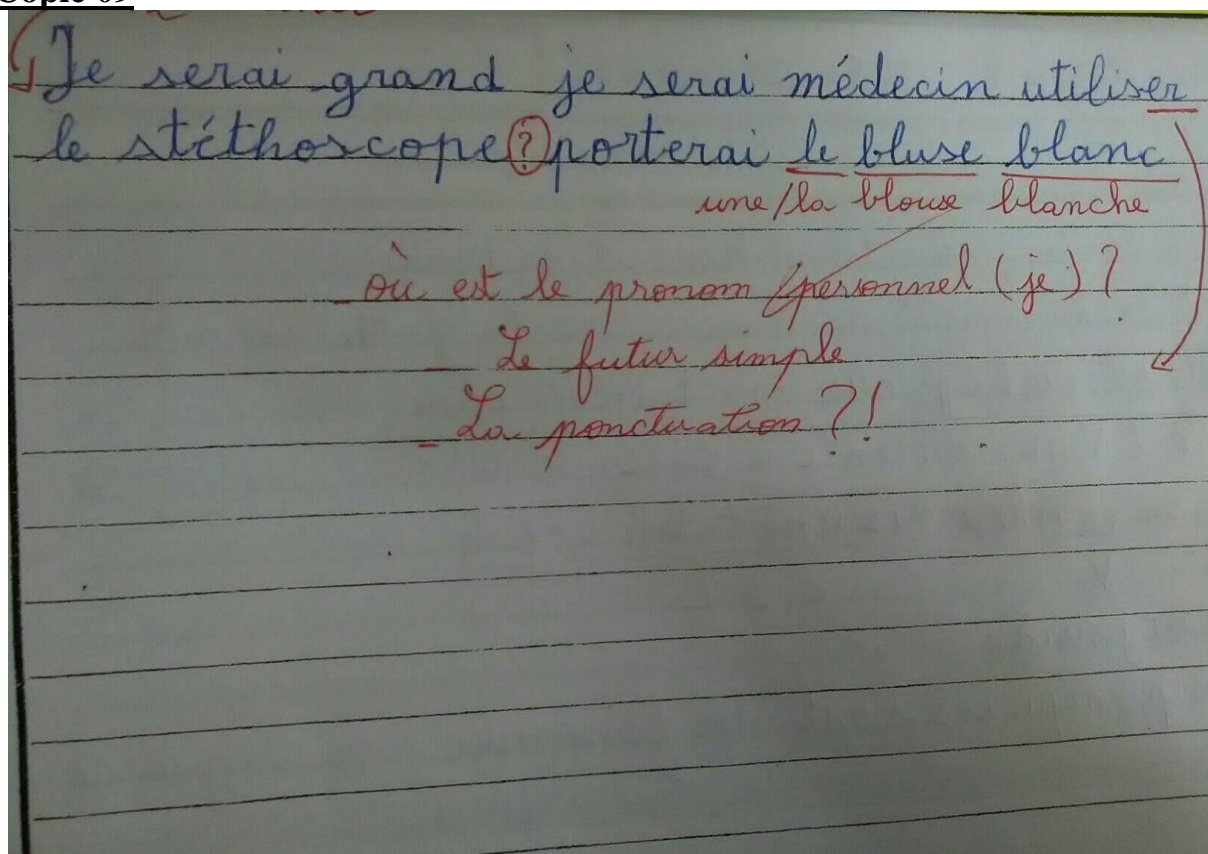 Je serai grand je serai médecin utiliser
le stéthoscope ? porterai le bluse blanc
une/la blouse blanche
où est le pronom personnel (je) ?
- Le futur simple
- La ponctuation ?!